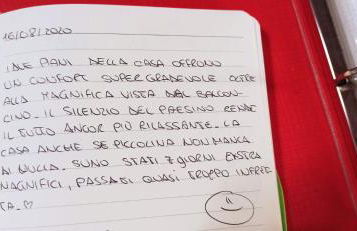 16/08/2020
I DUE PIANI DELLA CASA OFFRONO
UN CONFORT SUPER GRADEVOLE OLTRE
ALLA MAGNIFICA VISTA DAL BALCON-
CINO. IL SILENZIO DEL PAESINO RENDE
IL TUTTO ANCOR PIÙ RILASSANTE. LA
CASA ANCHE SE PICCOLINA NON MANCA
DI NULLA. SONO STATI 7 GIORNI EXTRA
MAGNIFICI, PASSATI QUASI TROPPO INFRET-
TA.